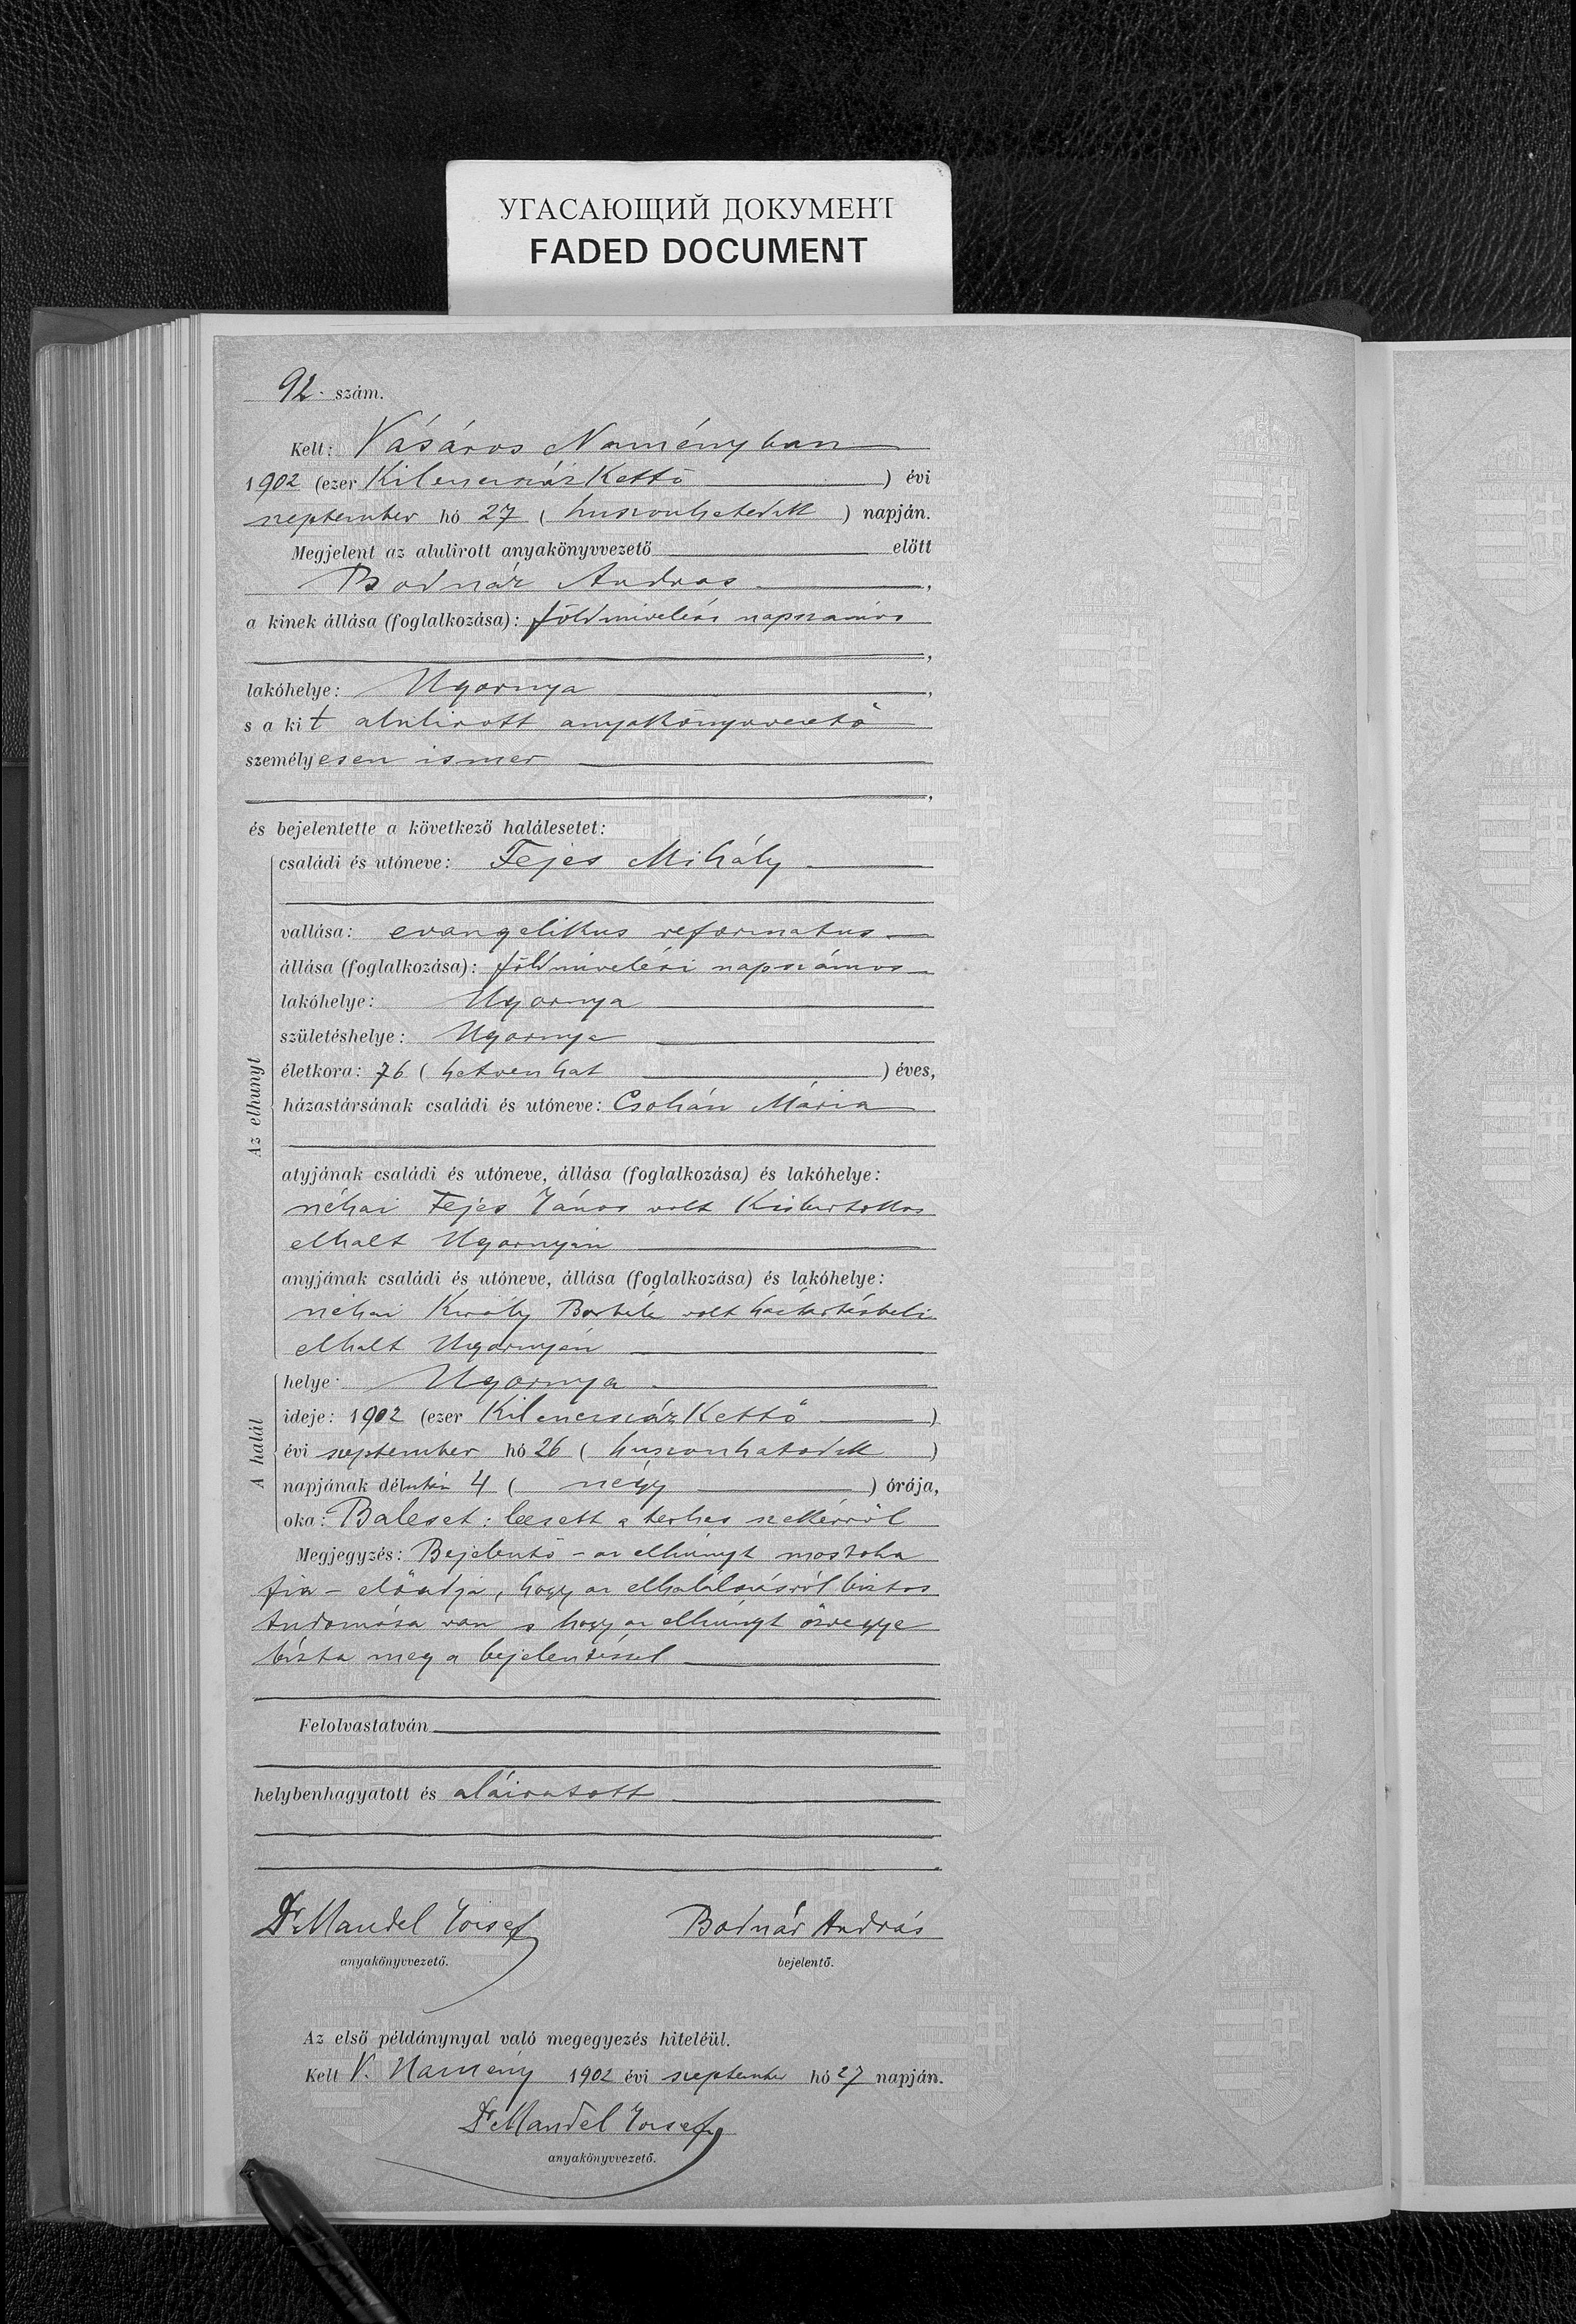 УГАСАЮЩИЙ ДОКУМЕНТ
FADED DOCUMENT
92. szám.
Kelt: Vásáros Naményban
1902 (ezer Kilencszáz Kettő ) évi
szeptember hó 27 ( huszonhetedik ) napján.
Megjelent az alulirott anyakönyvvezető előtt
Bodnár Andras ,
a kinek állása (foglalkozása): földmivelési napszámos
,
lakóhelye: Ugornya ,
s a kit alulirott anyakönyvvezető
személyesen ismer
,
és bejelentette a következő halálesetet:
Az elhunyt
családi és utóneve: Fejes Mihály
vallása: evangelikus reformatus
állása (foglalkozása): földmivelési napszámos
lakóhelye: Ugornya
születéshelye: Ugornya
életkora: 76 ( hetvenhat ) éves,
házastársának családi és utóneve: Csohán Mária
atyjának családi és utóneve, állása (foglalkozása) és lakóhelye:
néhai Fejes János volt Kisbirtokos
elhalt Ugornyán
anyjának családi és utóneve, állása (foglalkozása) és lakóhelye:
néhai Király Borbála volt háztartásbeli
elhalt Ugornyán
A halál
helye: Ugornya
ideje: 1902 (ezer Kilencszáz Kettő )
évi szeptember hó 26 ( huszonhatodik )
napjának délután 4 ( négy ) órája,
oka: Baleset: leesett a terhes szekérről
Megjegyzés: Bejelentő - az elhunyt mostoha
fia - előadja, hogy az elhalálozásról biztos
tudomása van s hogy az elhúnyt özvegye
bízta meg a bejelentéssel
Felolvastatván
helybenhagyatott és aláiratott
Dr Mandel József Bodnár András
anyakönyvvezető. bejelentő.
Az első példánynyal való megegyezés hiteléül.
Kelt V. Namény 1902 évi szeptember hó 27 napján.
Dr Mandel József
anyakönyvvezető.